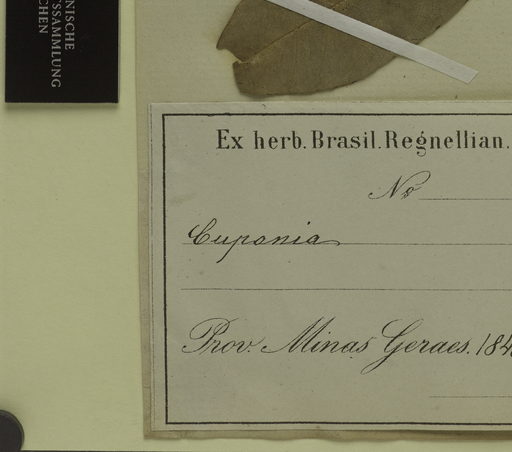 NISCHE
SSAMMLUNG
CHEN
Ex herb. Brasil. Regnellian.
No
Cupania
Prov. Minas Geraes. 184